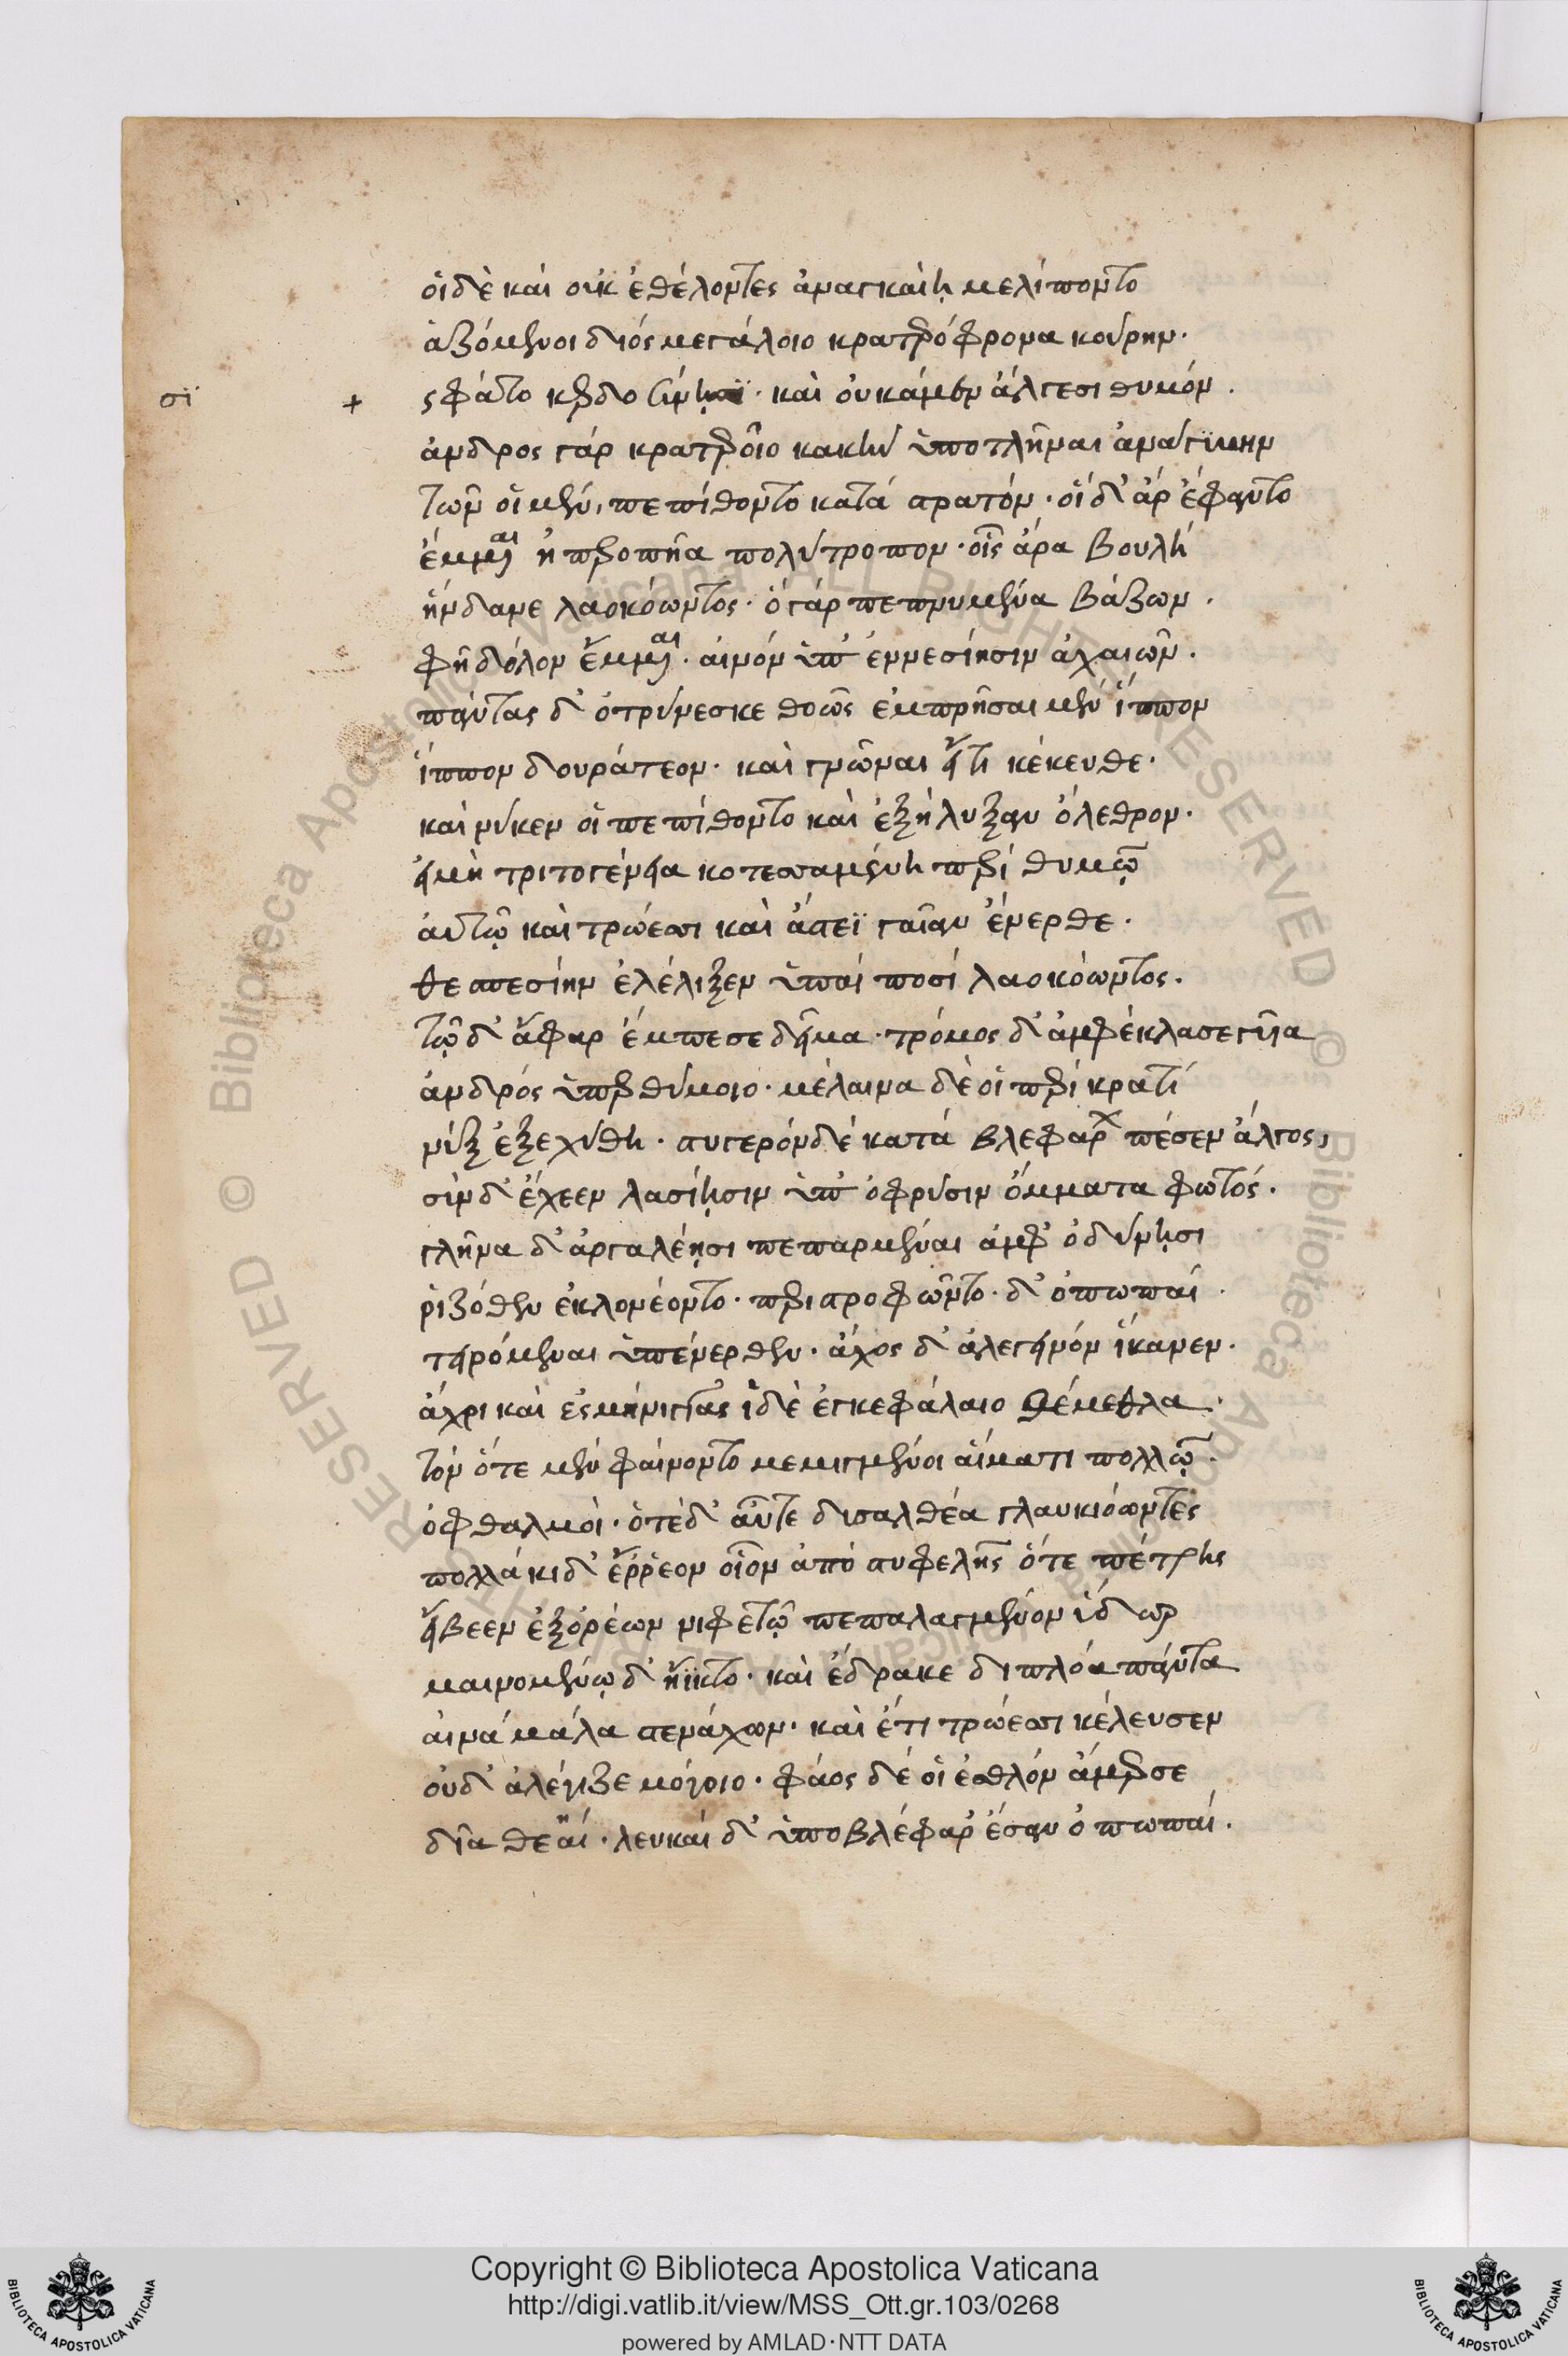 οἱ δὲ καὶ οὐκ ἐθέλοντες ἀναγκαίῃ μελίποντο
ἀζόμενοι διὸς μεγάλοιο κρατερόφρονα κούρην·
σϊ + ς φάτο κερδοσύνῃσϊ· καὶ οὐ κάμεν ἄλγεσι θυμόν.
ἀνδρος γάρ κρατεροῖο κακὴν ὑποτλῆναι ἀναγϊκην
τῶν οἱ μὲν, πεπίθοντο κατά στρατόν· οἱ δ' ἄρ ἔφαντο
ἔμμεναι ἠπεροπῆα πολύτροπον· οἷς ἄρα βουλή
ἥνδανε λαοκόωντος· ὁ γάρ πεπνυμένα βάζων.
φῆ δόλον ἔμμεναι αἰνόν ὑπ' ἐννεσίησιν ἀχαιῶν.
πάντας δ' ὀτρύνεσκε θοῶς ἐμπρῆσαι μὲν ἵππον
ἵππον δουράτεον· καὶ γνῶναι εἴ τι κέκευθε·
καὶ νύ κεν οἱ πεπίθοντο καὶ ἐξήλυξαν ὄλεθρον.
εἰ μὴ τριτογένεια κοτεσσαμένη περὶ θυμῷ
αὐτῷ καὶ τρώεσσι καὶ ἄστεϊ γαῖαν ἔνερθε·
θεσπεσίην ἐλέλιξεν ὑπαί ποσί λαοκόωντος.
τῷ δ' ἄφαρ ἔμπεσε δεῖμα· τρόμος δ' ἀμφέκλασε γυῖα
ἀνδρός ὑπερθύμοιο· μέλαινα δέ οἱ περὶ κρατί
νύξ ἐξεχύθη· στυγερόν δέ κατά βλεφάρων πέσεν ἄλγος,
σύν δ' ἔχεεν λασίῃσιν ὑπ' ὀφρύσιν ὄμματα φωτός.
γλῆνα δ' ἀργαλέῃσι πεπαρμέναι ἀμφ' ὀδύνῃσι
ῥιζόθεν ἐκλονέοντο· περιστροφῶντο· δ' ὀπωπαί
τειρόμεναι ὑπένερθεν· ἄχος δ' ἀλεγεινόν ἵκανεν.
ἄχρι καὶ ἐς μήνιγγας ἰδὲ ἐγκεφάλοιο θέμεθλα.
τόν ὁτε μὲν φαίνοντο μεμιγμένοι αἵματι πολλῷ.
ὀφθαλμοὶ· ὁτὲ δ' αὖτε δυσαλθέα γλαυκιόωντες
πολλάκι δ' ἔῤῥεον οἷον ἀπό στυφελῆς ὅτε πέτρης
εἴβεεν ἐξ ὀρέων νιφετῷ πεπαλαγμένον ὕδωρ
μαινομένῳ δ' ἤϊκτο· καὶ ἔδρακε διπλόα πάντα
αἰνά μάλα στενάχων· καὶ ἔτι τρώεσσι κέλευσεν
οὐδ' ἀλέγιζε μόγοιο· φάος δέ οἱ ἐσθλόν ἄμερσε
δῖα θεαί· λευκαί δ' ὑπο βλέφαρ' ἔσαν ὀπωπαί.
Copyright © Biblioteca Apostolica Vaticana
http://digi.vatlib.it/view/MSS_Ott.gr.103/0268
powered by AMLAD·NTT DATA